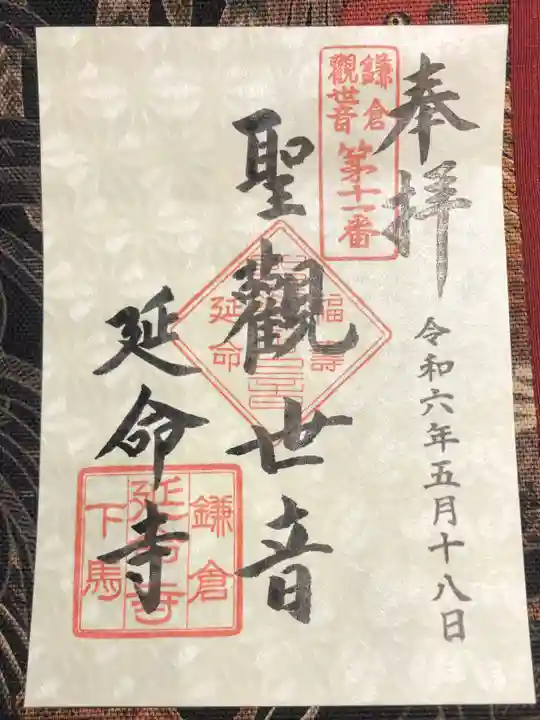 奉拝
令和六年五月十八日
鎌倉
觀世音
第十一番
聖觀世音
福壽
延命
延命寺
鎌倉
延命寺
下馬